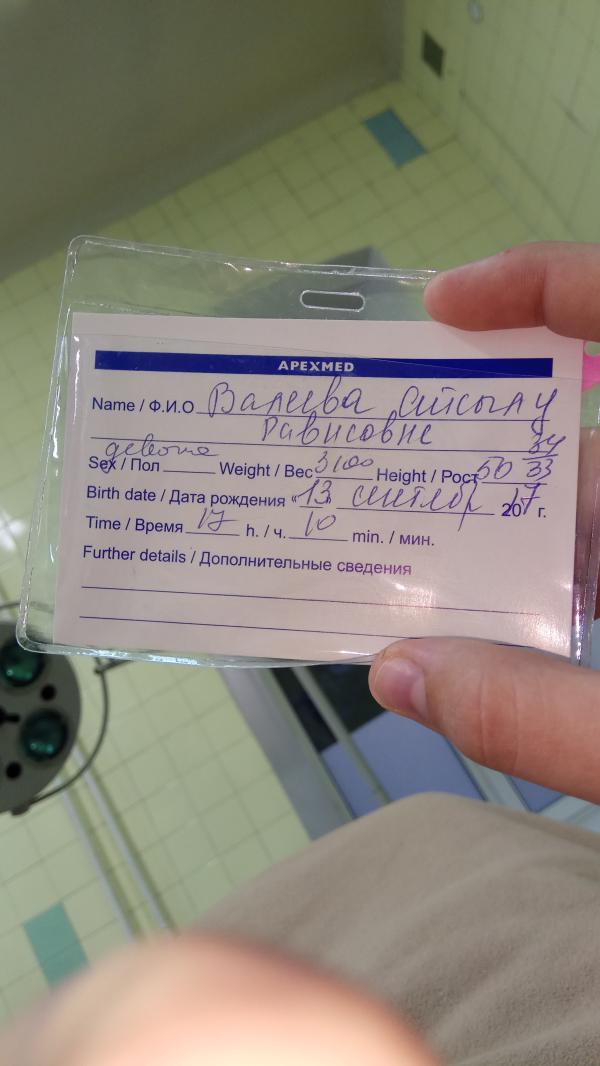 APEXMED
Name / Ф.И.О Валеева Айсылу
Рависовне
34
Sex / Пол девочка Weight / Вес 3100 Height / Рост 50 33
Birth date / Дата рождения "13" сентябр 2017 г.
Time / Время 17 h. / ч. 10 min. / мин.
Further details / Дополнительные сведения